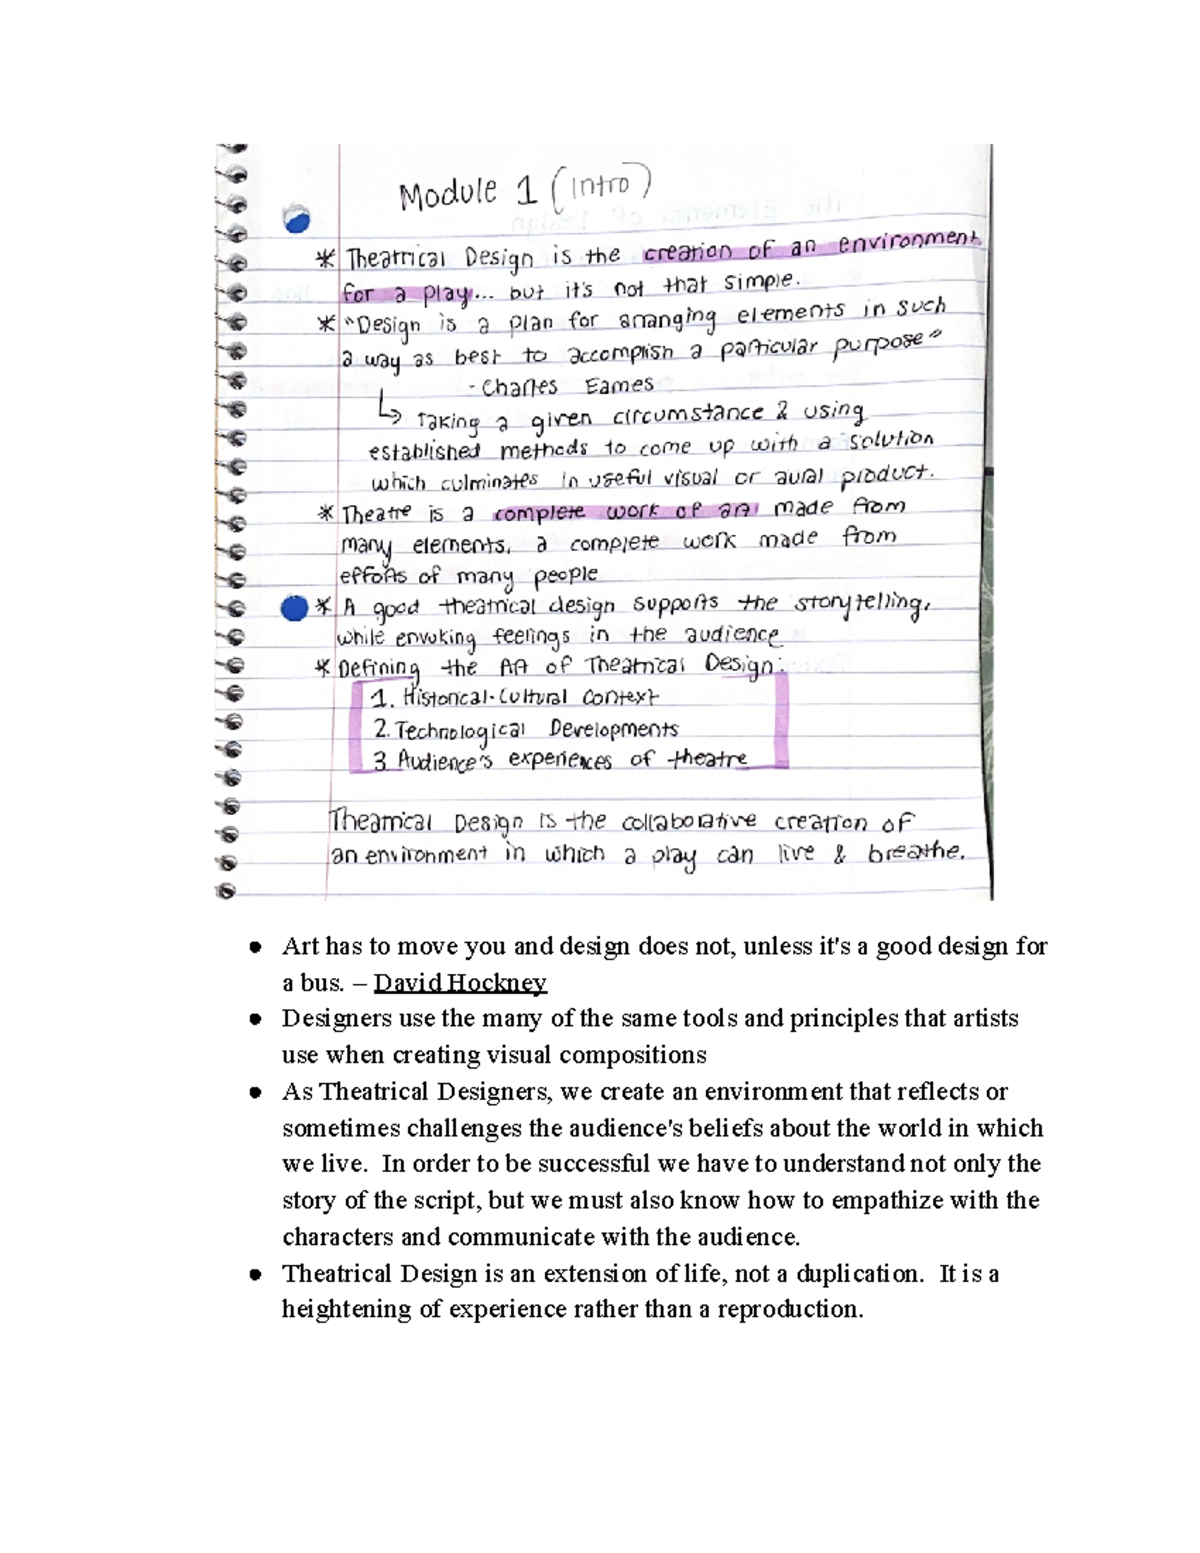 Module 1 (Intro)
* Theatrical Design is the creation of an environment
for a play... but it's not that simple.
* "Design is a plan for arranging elements in such
a way as best to accomplish a particular purpose"
- Charles Eames
↳ Taking a given circumstance & using
established methods to come up with a solution
which culminates in useful visual or aural product.
* Theatre is a complete work of art made from
many elements, a complete work made from
efforts of many people
* A good theatrical design supports the storytelling,
while envoking feelings in the audience
* Defining the Art of Theatrical Design:
1. Historical-Cultural Context
2. Technological Developments
3. Audience's experiences of theatre
Theatrical Design is the collaborative creation of
an environment in which a play can live & breathe.
● Art has to move you and design does not, unless it's a good design for
a bus. – David Hockney
● Designers use the many of the same tools and principles that artists
use when creating visual compositions
● As Theatrical Designers, we create an environment that reflects or
sometimes challenges the audience's beliefs about the world in which
we live.  In order to be successful we have to understand not only the
story of the script, but we must also know how to empathize with the
characters and communicate with the audience.
● Theatrical Design is an extension of life, not a duplication.  It is a
heightening of experience rather than a reproduction.